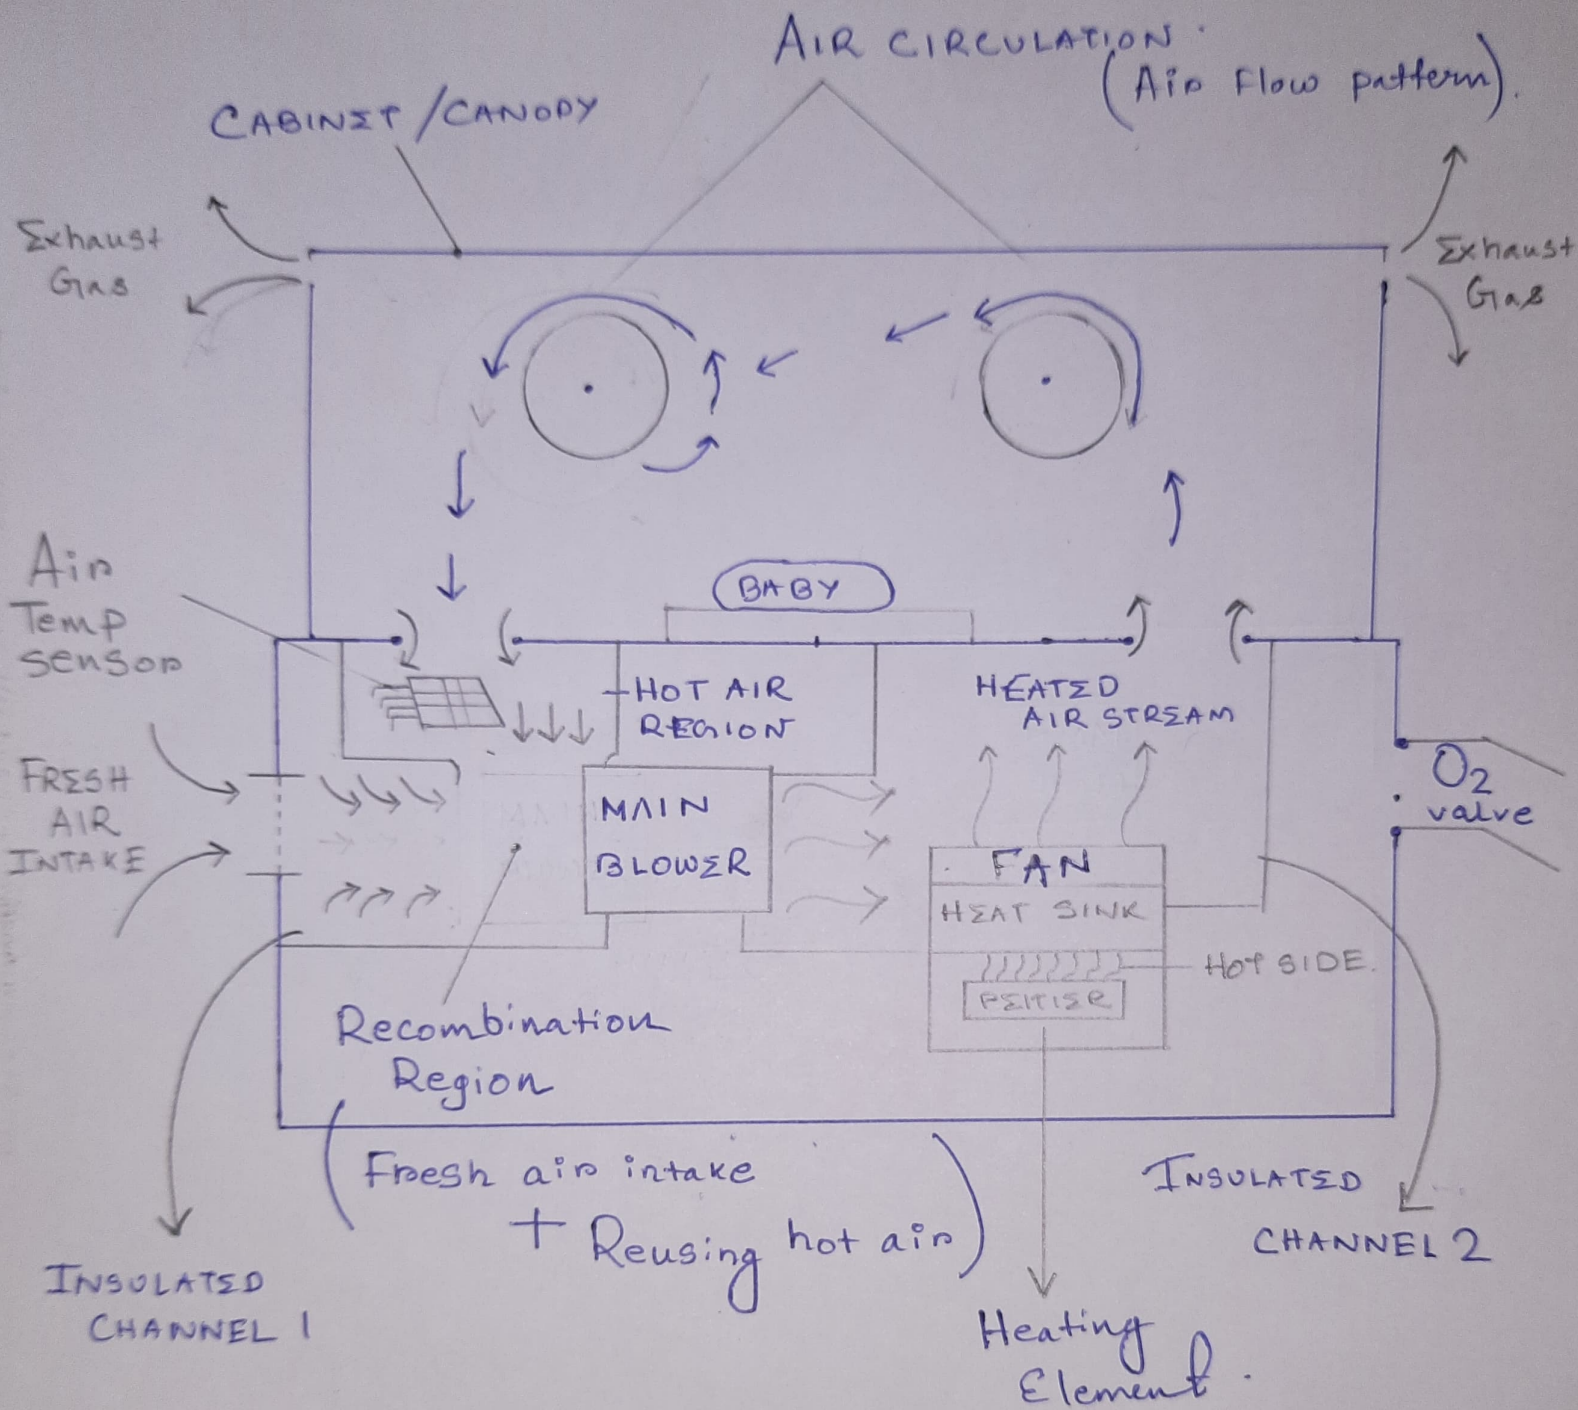 AIR CIRCULATION.
(Air Flow pattern).
CABINET/CANOPY
Exhaust
Gas
Exhaust
Gas
Air
Temp
sensor
BABY
HOT AIR
REGION
HEATED
AIR STREAM
FRESH
AIR
INTAKE
MAIN
BLOWER
O2
valve
FAN
HEAT SINK
HOT SIDE.
PELTIER
Recombination
Region
(Fresh air intake
+ Reusing hot air)
INSULATED
CHANNEL 2
INSULATED
CHANNEL 1
Heating
Element.